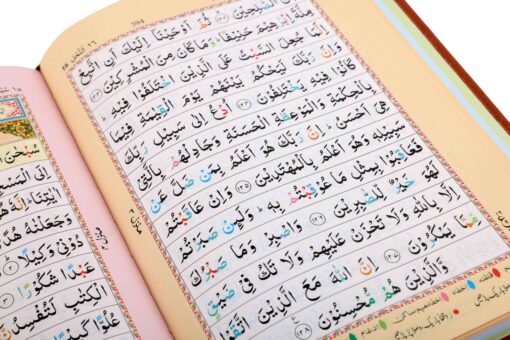 النحل ١٦
الصّٰلِحِيْنَ ﴿۱۲۲﴾ ثُمَّ اَوْحَيْنَاۤ اِلَيْكَ اَنِ اتَّبِعْ
مِلَّةَ اِبْرٰهِيْمَ حَنِيْفًا ؕ وَمَا كَانَ مِنَ الْمُشْرِكِيْنَ ﴿۱۲۳﴾
اِنَّمَا جُعِلَ السَّبْتُ عَلَى الَّذِيْنَ اخْتَلَفُوْا فِيْهِ ؕ
وَاِنَّ رَبَّكَ لَيَحْكُمُ بَيْنَهُمْ يَوْمَ الْقِيٰمَةِ فِيْمَا
كَانُوْا فِيْهِ يَخْتَلِفُوْنَ ﴿۱۲۴﴾ اُدْعُ اِلٰى سَبِيْلِ رَبِّكَ
بِالْحِكْمَةِ وَالْمَوْعِظَةِ الْحَسَنَةِ وَجَادِلْهُمْ بِالَّتِيْ
هِيَ اَحْسَنُ ؕ اِنَّ رَبَّكَ هُوَ اَعْلَمُ بِمَنْ ضَلَّ عَنْ
سَبِيْلِهٖ وَهُوَ اَعْلَمُ بِالْمُهْتَدِيْنَ ﴿۱۲۵﴾ وَاِنْ عَاقَبْتُمْ
فَعَاقِبُوْا بِمِثْلِ مَا عُوْقِبْتُمْ بِهٖ ؕ وَلَئِنْ صَبَرْتُمْ
لَهُوَ خَيْرٌ لِّلصّٰبِرِيْنَ ﴿۱۲۶﴾ وَاصْبِرْ وَمَا صَبْرُكَ
اِلَّا بِاللّٰهِ وَلَا تَحْزَنْ عَلَيْهِمْ وَلَا تَكُ فِيْ ضَيْقٍ
مِّمَّا يَمْكُرُوْنَ ﴿۱۲۷﴾ اِنَّ اللّٰهَ مَعَ الَّذِيْنَ اتَّقَوْا
وَّالَّذِيْنَ هُمْ مُّحْسِنُوْنَ ﴿۱۲۸﴾
سُبْحٰنَ
اِلَى الْمَسْجِدِ
اٰيٰتِنَا اِنَّهٗ
وَجَعَلْنٰهُ هُدًى
دُوْنِيْ وَكِيْلًا
عَبْدًا شَكُوْرًا
الْكِتٰبِ لَتُفْسِدُنَّ
عُلُوًّا كَبِيْرًا